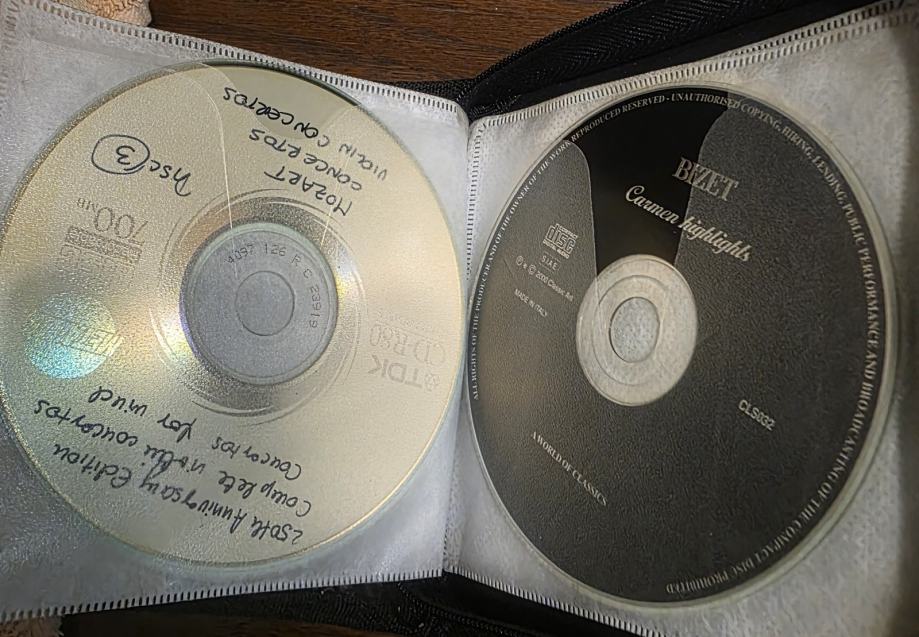 250th Anniversary Edition
Complete violin concertos
Concertos for wind
TDK
CD-R80
700MB
MOZART
CONCERTOS
VIOLIN CONCERTOS
DISC 3
4097 126 R C 23919
ALL RIGHTS OF THE PRODUCER AND OF THE OWNER OF THE WORK REPRODUCED RESERVED - UNAUTHORISED COPYING, HIRING, LENDING, PUBLIC PERFORMANCE AND BROADCASTING OF THE COMPACT DISC PROHIBITED
BIZET
Carmen highlights
COMPACT
disc
DIGITAL AUDIO
S.I.A.E.
℗ © 2000 Classic Art
MADE IN ITALY
CLS032
A WORLD OF CLASSICS